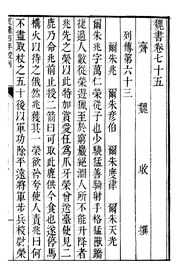 魏書卷七十五
齊魏收撰
列傳第六十三
爾朱兆 爾朱彥伯 爾朱度律 爾朱天光
爾朱兆字萬仁榮從子也少驍猛善騎射手格猛獸蹻
捷過人數從榮遊獵至於窮巖絕澗人所不能升降者
兆先之榮以此特加賞愛任爲爪牙榮曾送臺使見二
鹿乃命兆前止授二箭曰可取此鹿供今食也遂停馬
構火以待之俄然兆獲其一榮欲矜夸使人責兆曰何
不盡取杖之五十後以軍功除平遠將軍步兵校尉榮